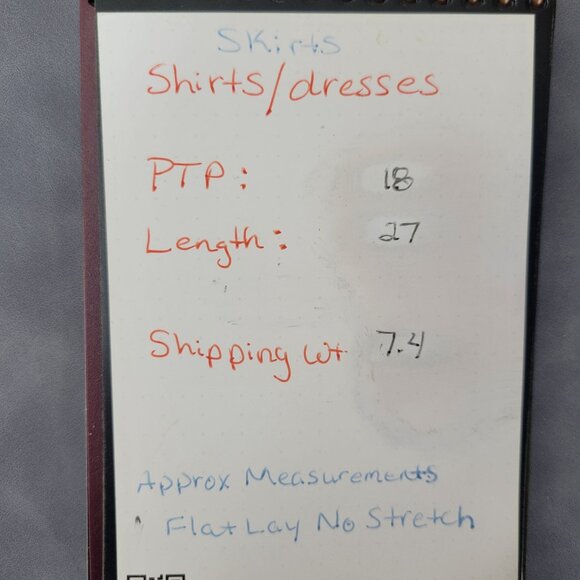 Skirts
Shirts/dresses
PTP: 18
Length: 27
Shipping Wt 7.4
Approx Measurements
Flat Lay No Stretch